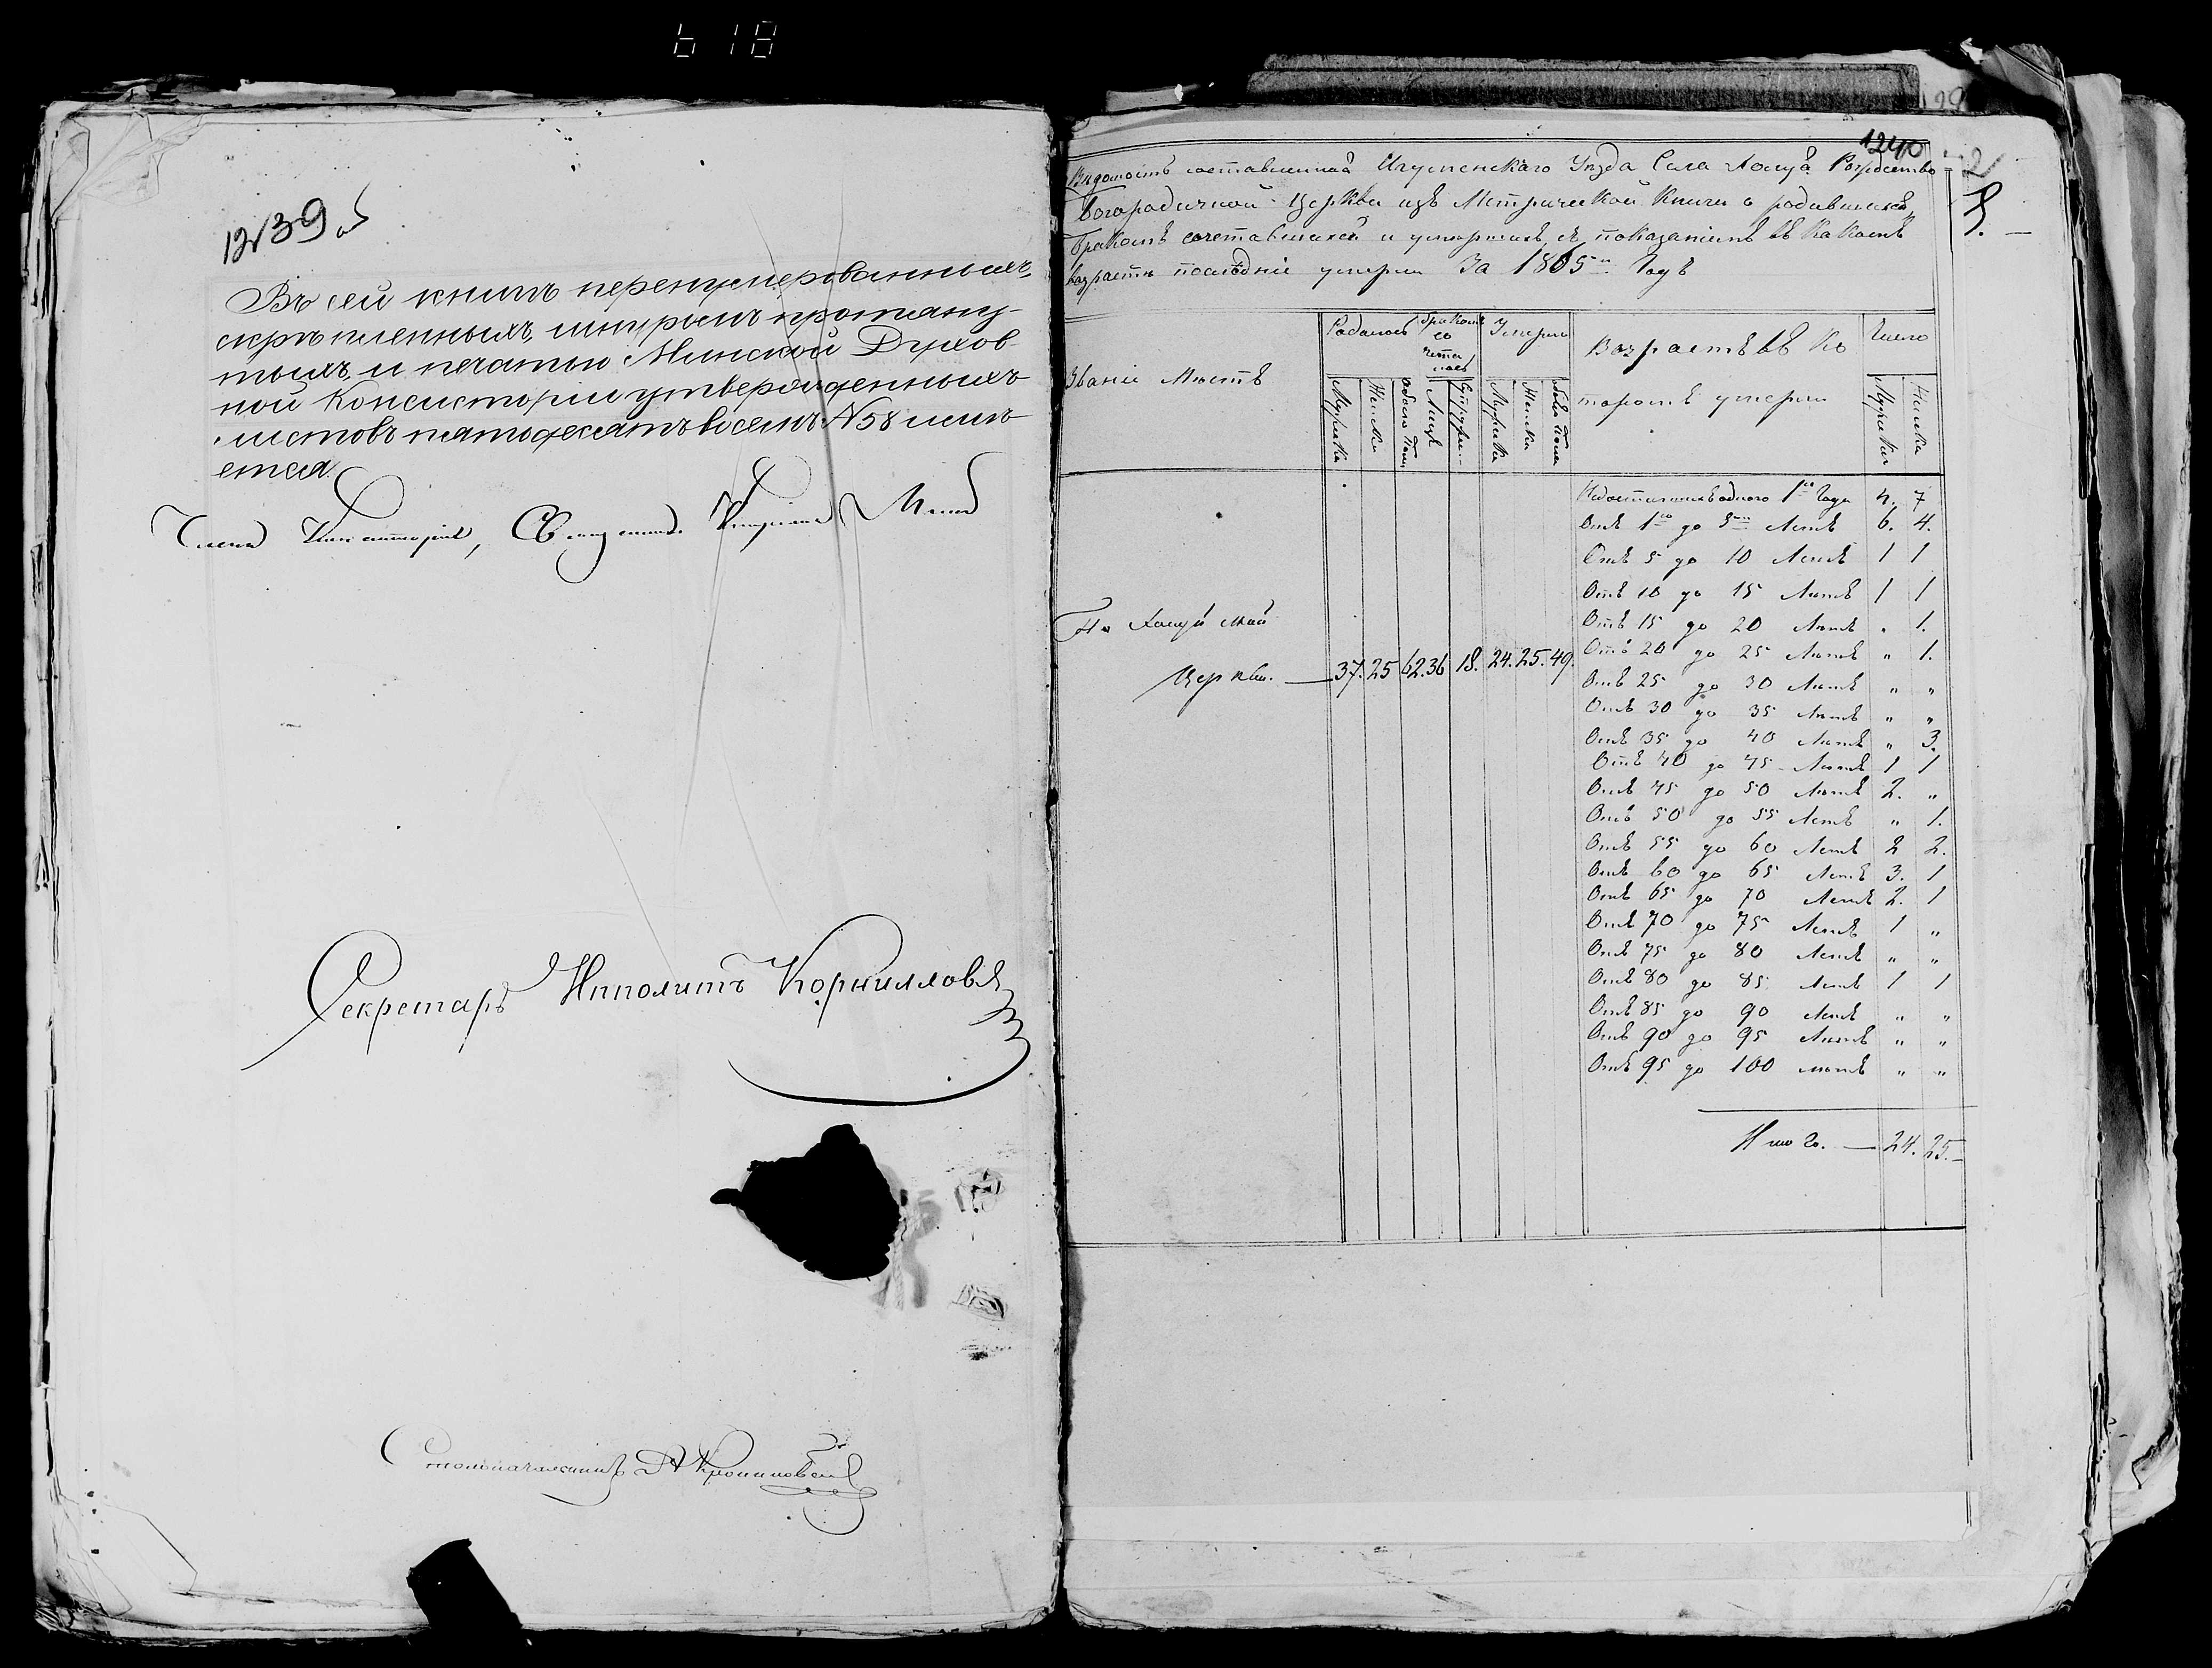 618
1239 об
Въ сей книгѣ перенумерованныхъ,
скрѣпленныхъ, шнуромъ протяну-
тыхъ, и печатью Минской Духов
ной Консисторіи утвержденныхъ
листовъ пятьдесятъ восемь N 58 имѣ-
ется.
Членъ Консисторіи, Священникъ
Секретарь Ипполитъ Корниллов
Столоначальникъ
1240
2
Вѣдомость составленная Игуменскаго Уѣзда Села Рождество
Богородичной Церкви изъ Метрической Книги о родившихся,
бракомъ сочетавшихся и умершихъ, съ показаніемъ въ какомъ
возрастѣ послѣдніе умерли За 1865й Годъ
Званіе Мѣстъ
Родилось
Бракомъ
со
чета
лось
Умерло
Возрастъ въ ко
торомъ умерли
Число
Мужска
Женска
обоего пола
Лицъ
Супруж.
Мужска
Женска
обоего пола
Мужска
Женска
Недостигшихъ одного 1го Года 4. 7
Отъ 1го до 5ти Летъ 6. 4.
Отъ 5 до 10 Летъ 1 1
Отъ 10 до 15 Летъ 1 1
Отъ 15 до 20 Летъ „ 1.
Отъ 20 до 25 Летъ „ 1.
Отъ 25 до 30 Летъ „ „
Отъ 30 до 35 Летъ „ „
Отъ 35 до 40 Летъ „ 3.
Отъ 40 до 45 Летъ 1 1
Отъ 45 до 50 Летъ 2. „
Отъ 50 до 55 Летъ „ 1.
Отъ 55 до 60 Летъ 2 2.
Отъ 60 до 65 Летъ 3. 1
Отъ 65 до 70 Летъ 2. 1
Отъ 70 до 75 Летъ 1 „
Отъ 75 до 80 Летъ „ „
Отъ 80 до 85 Летъ 1 1
Отъ 85 до 90 Летъ „ „
Отъ 90 до 95 Летъ „ „
Отъ 95 до 100 летъ „ „
Итого. — 24. 25. –
При
Церкви. — 37. 25 62. 36 18. 24. 25. 49.